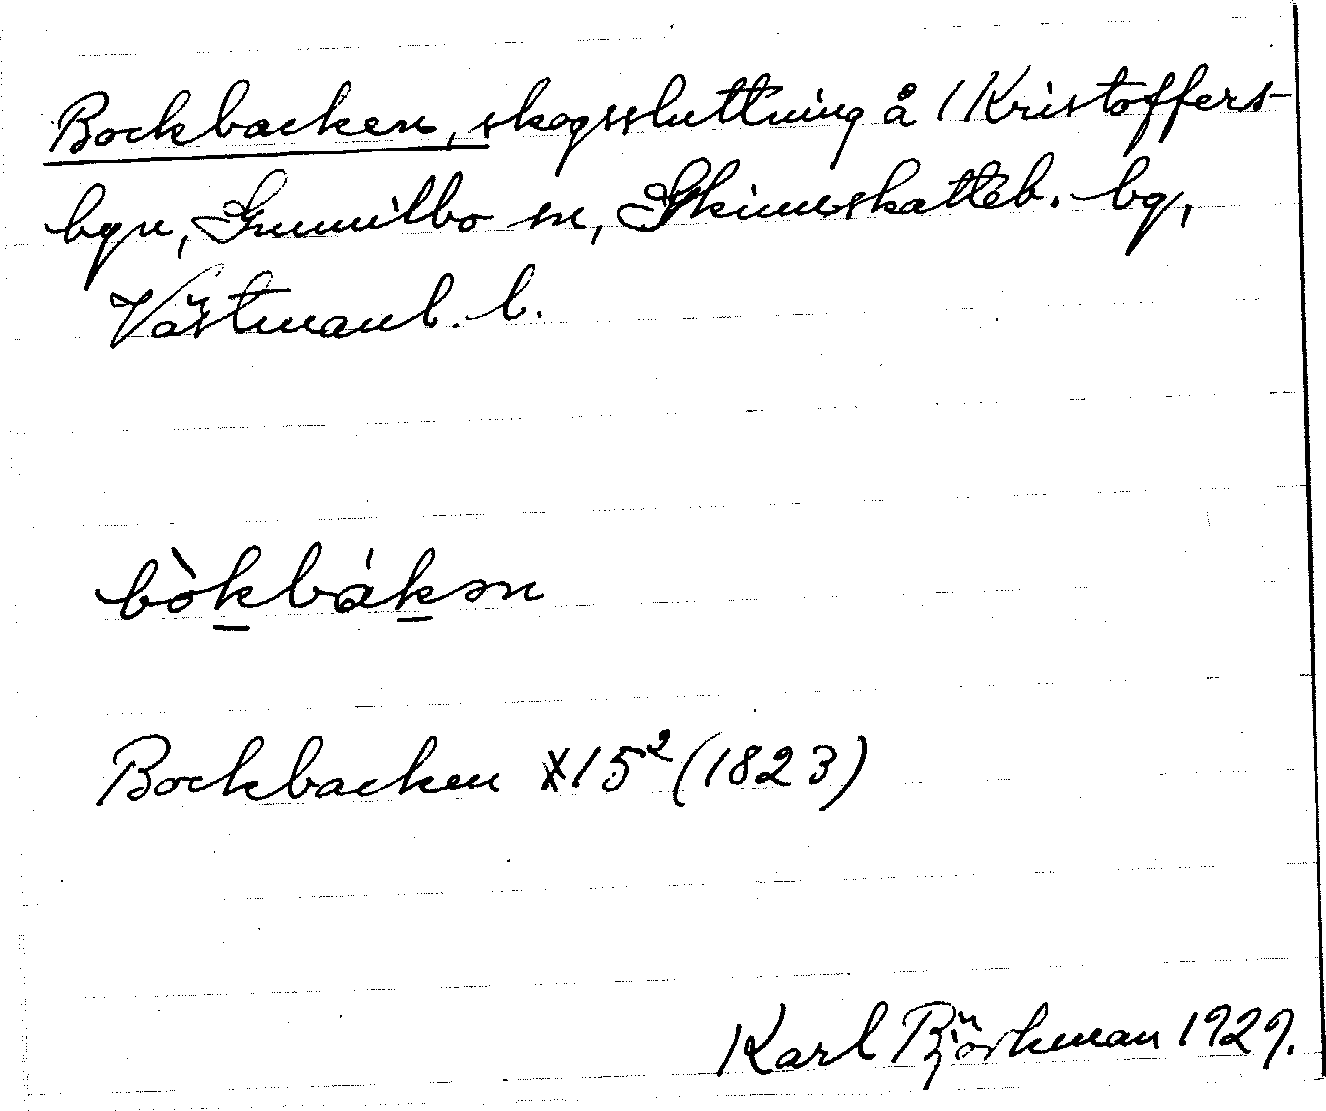 Bockbacken, skogssluttning å Kristoffers-
byn, Gunnilbo sn, Skinnskatteb. bg,
Västmanl. l.
bòkbákən
Bockbacken X15² (1823)
Karl Björkman 1929.